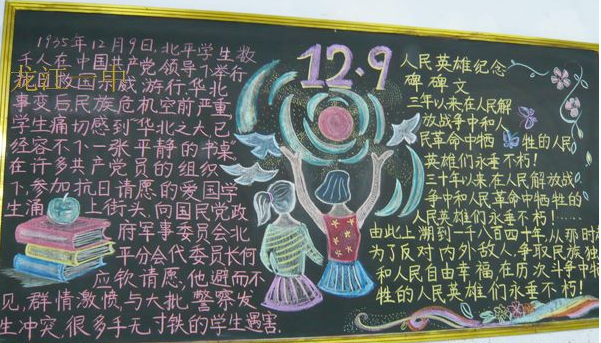 1935年12月9日,北平学生数
千人在中国共产党领导下举行
救国示威游行,华北
事变后民族危机空前严重
学生痛切感到"华北之大,已
经容不下一张平静的书桌"
在许多共产党员的组织
下,参加抗日请愿的爱国学
生涌上街头,向国民党政
府军事委员会北
平分会代委员长何
应钦请愿,他避而不
见,群情激愤,与大批警察发
生冲突,很多手无寸铁的学生遇害.
龙江一中
12.9
人民英雄纪念
碑碑文
三年以来在人民解
放战争中和人
民革命中牺牲的人民
英雄们永垂不朽!
三十年以来在人民解放战
争中和人民革命中牺牲的
人民英雄们永垂不朽!……
由此上溯到一千八百四十年,从那时起
为了反对内外敌人,争取民族独
和人民自由幸福,在历次斗争中牺
牲的人民英雄们永垂不朽!